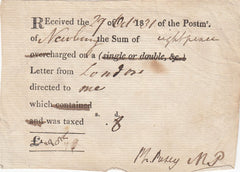 Received the 29 of Oct 1831 of the Postmr.
of Newbury the Sum of eight pence
overcharged on a (single or double, &c.)
Letter from London
directed to me
which contained
and was taxed s. d. 8
Ph. Pusey M.P